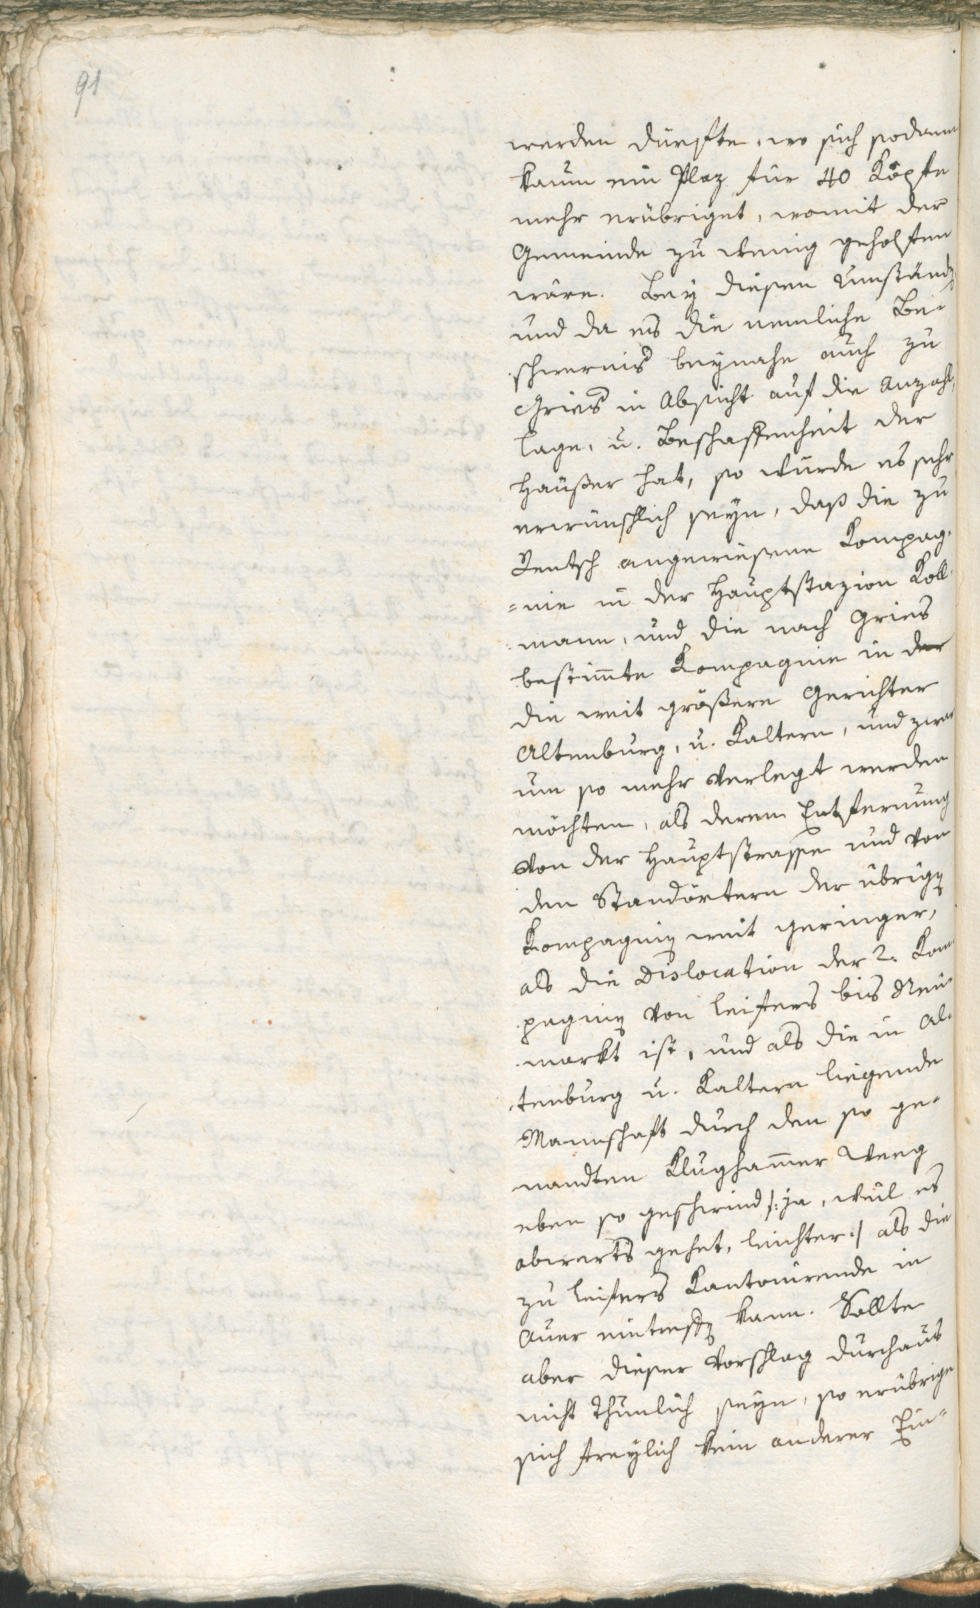 91
werden dürfte, wo sich sodann
kaum ein Plaz für 40 Köpfe
mehr erübriget, womit der
Gemeinde zu wenig geholfen
wäre. Bey diesen Umständ
und da es die nemliche Be-
schwerniß beynahe auch zu
Gries in Absicht auf die Anzahl,
Lage, u. Beschaffenheit der
Häußer hat, so würde es sehr
erwünschlich seyn, daß die zu
Rentsch angewiesene Kompag-
=nie in der Hauptstazion Koll-
mann, und die nach Gries
bestimmte Kompagnie in der
die weit größere Gerichter
Altenburg, u. Kaltern, und zwar
um so mehr verlegt werden
möchten, als deren Entfernung
von der Hauptstrasse und von
den Standörtern der übrigen
Kompagnien weit geringer,
als die Dislocation der 2. Kom-
pagnien von Leifers bis Neu-
markt ist, und als die in Al-
tenburg u. Kaltern liegende
Mannschaft durch den so ge-
nandten Klughammer Weeg
eben so geschwind /: ja, weil es
abwerts gehet, leichter :/ als die
zu Leifers Kantonirende in
Auer eintreffen kann. Sollte
aber dieser Vorschlag durchaus
nicht thunlich seyn, so erübrige
sich freylich kein anderer Ein-